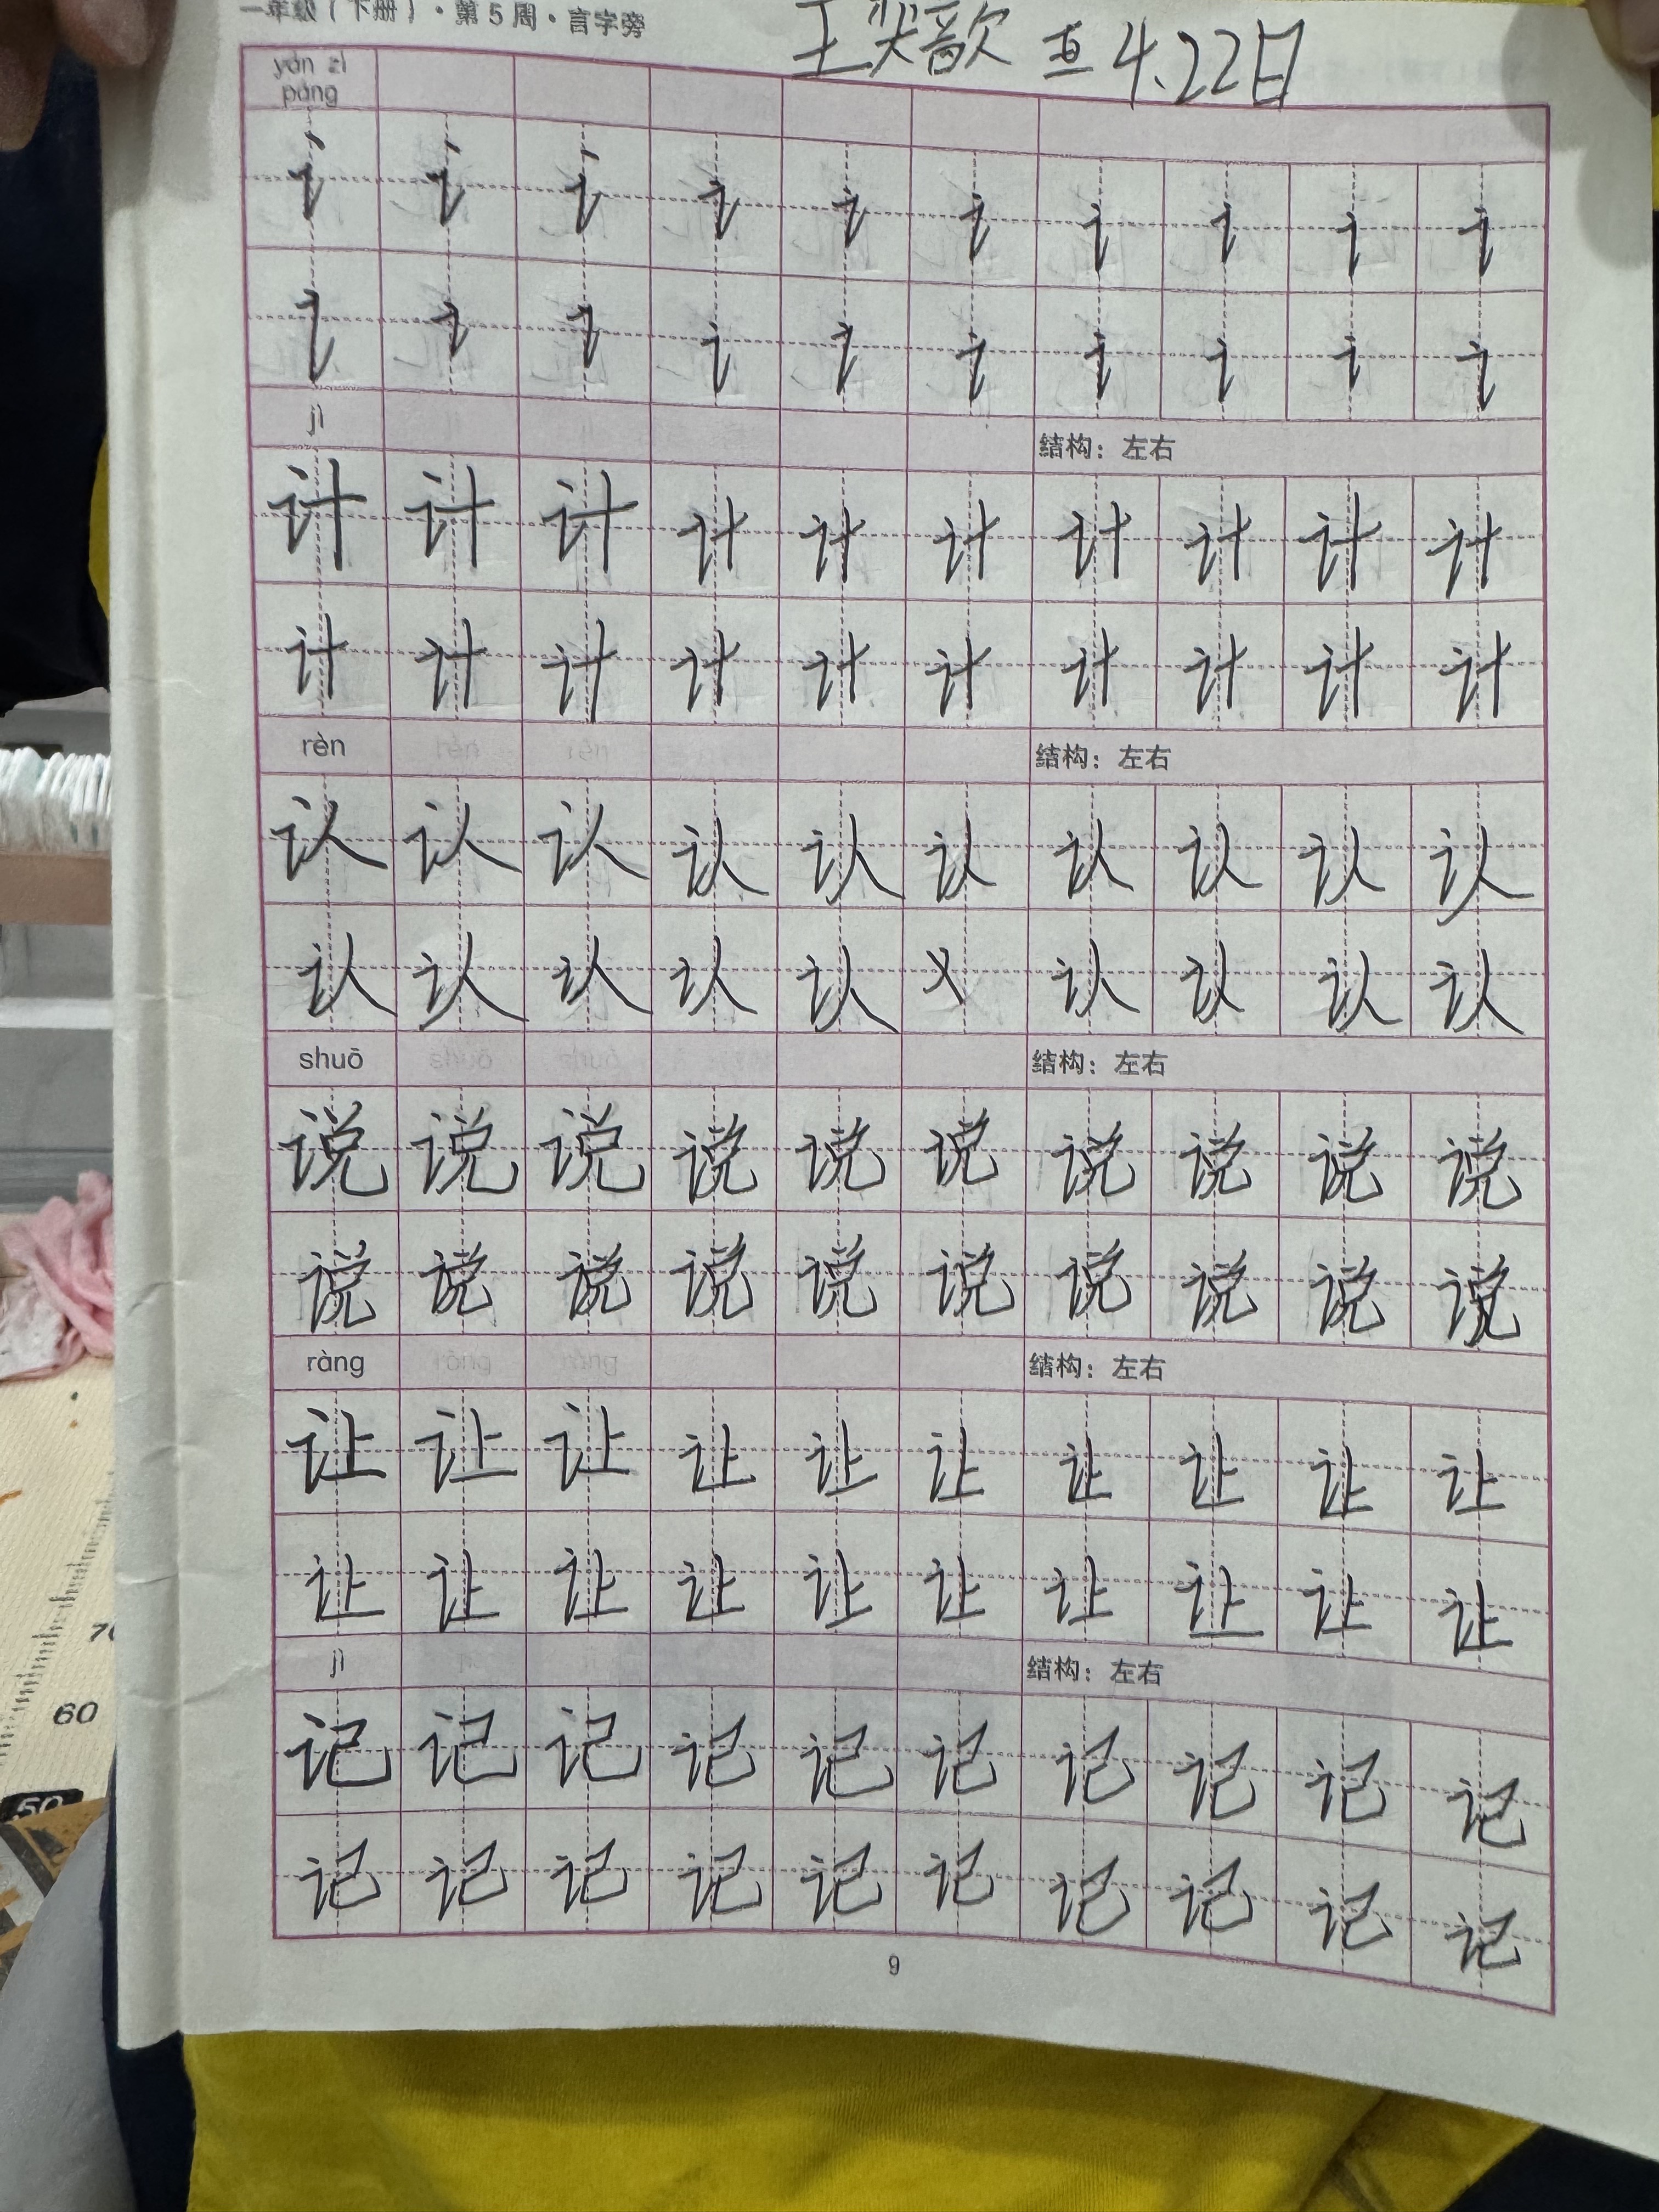 一年级（下册）·第5周·言字旁
4.22日
yán zì
páng
讠 讠 讠 讠 讠 讠 讠 讠 讠 讠
讠 讠 讠 讠 讠 讠 讠 讠 讠 讠
jì 结构：左右
计 计 计 计 计 计 计 计 计 计
计 计 计 计 计 计 计 计 计 计
rèn 结构：左右
认 认 认 认 认 认 认 认 认 认
认 认 认 认 认 认 认 认 认
shuō 结构：左右
说 说 说 说 说 说 说 说 说 说
说 说 说 说 说 说 说 说 说 说
ràng 结构：左右
让 让 让 让 让 让 让 让 让 让
让 让 让 让 让 让 让 让 让 让
jì 结构：左右
记 记 记 记 记 记 记 记 记 记
记 记 记 记 记 记 记 记 记 记
9
60
50